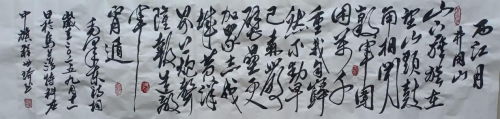 西江月
井冈山
山下旌旗在
望山头鼓
角相闻
敵军围
困万千
重我自巋
然不动早
已森嚴
壁垒更
加众志成
城黄洋
界上炮声
隆報道敵
军
宵遁
毛泽东詞